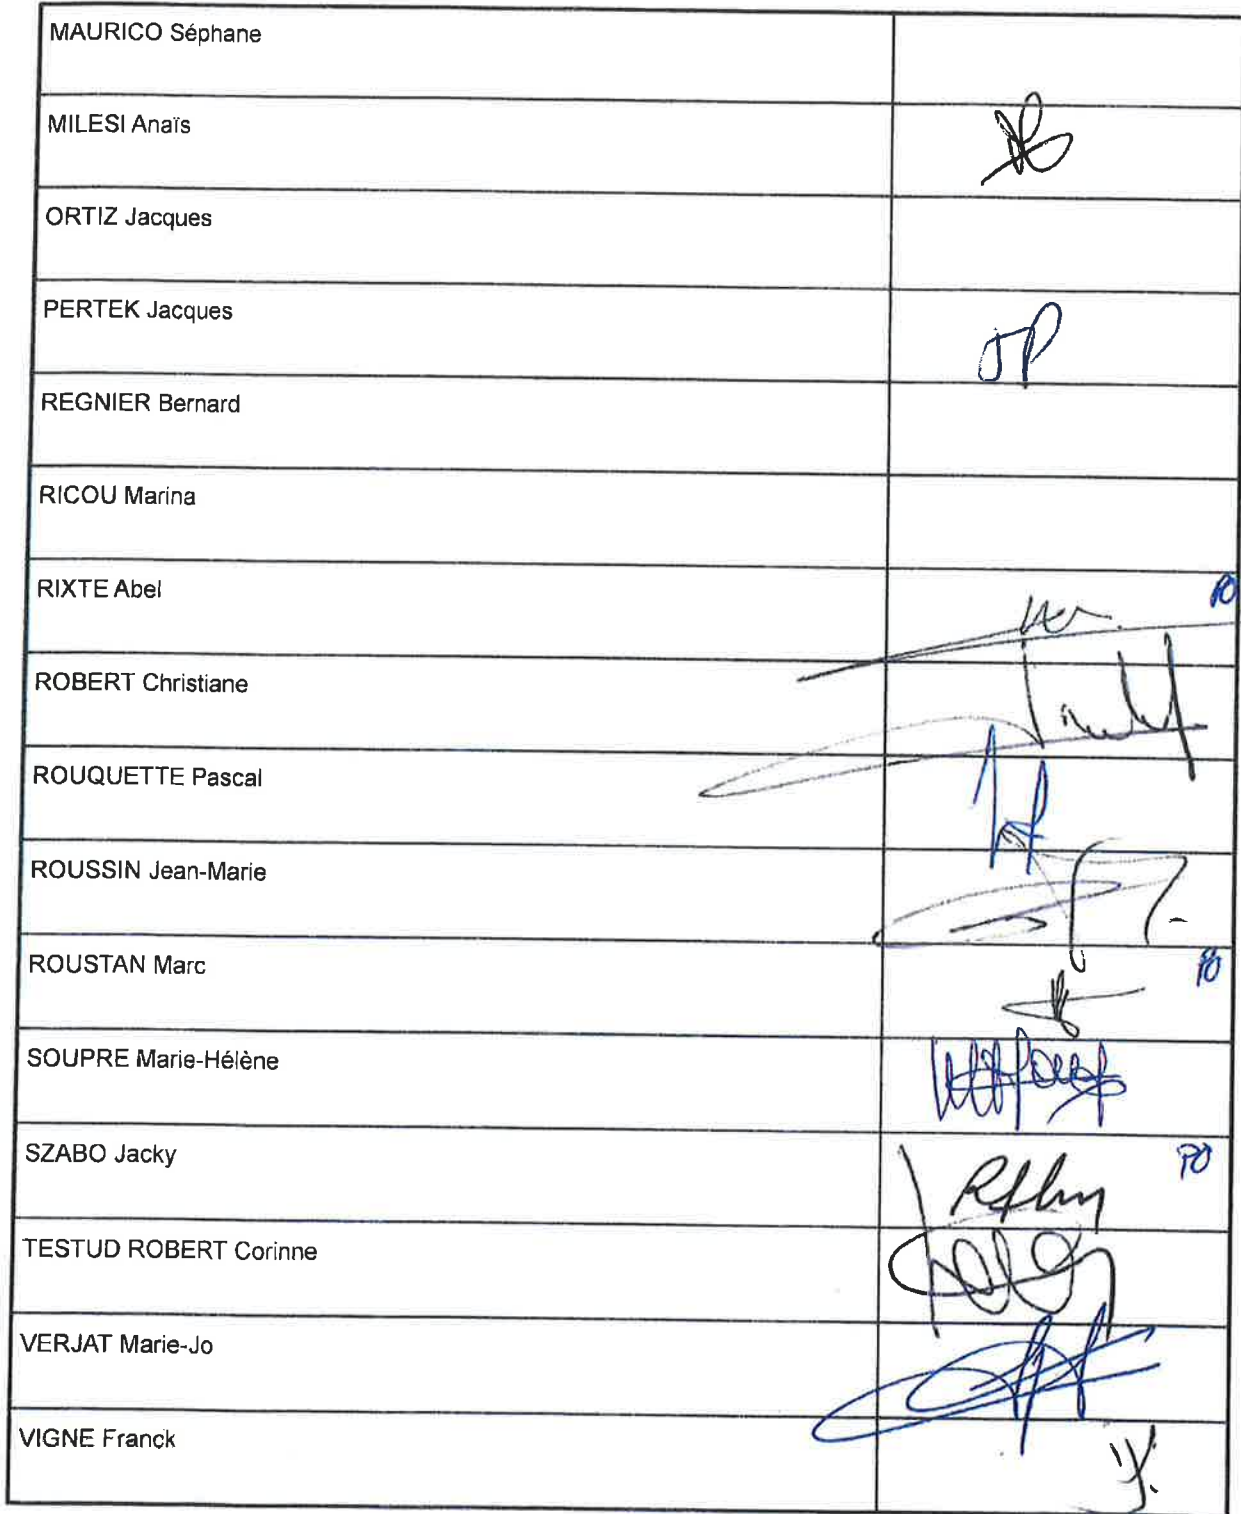 MAURICO Séphane
MILESI Anaïs
ORTIZ Jacques
PERTEK Jacques
JP
REGNIER Bernard
RICOU Marina
RIXTE Abel
PO
ROBERT Christiane
ROUQUETTE Pascal
ROUSSIN Jean-Marie
ROUSTAN Marc
PO
SOUPRE Marie-Hélène
SZABO Jacky
PO
TESTUD ROBERT Corinne
VERJAT Marie-Jo
VIGNE Franck